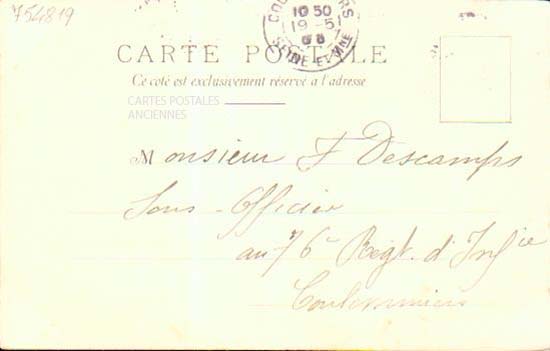 754819
10 50
19 -5
SEINE ET MNE
CARTE POSTALE
Ce coté est exclusivement réservé a l'adresse
CARTES POSTALES
ANCIENNES
Monsieur F Descamps
Sous-Officier
au 76e Regt. d'Infie
Coulommiers